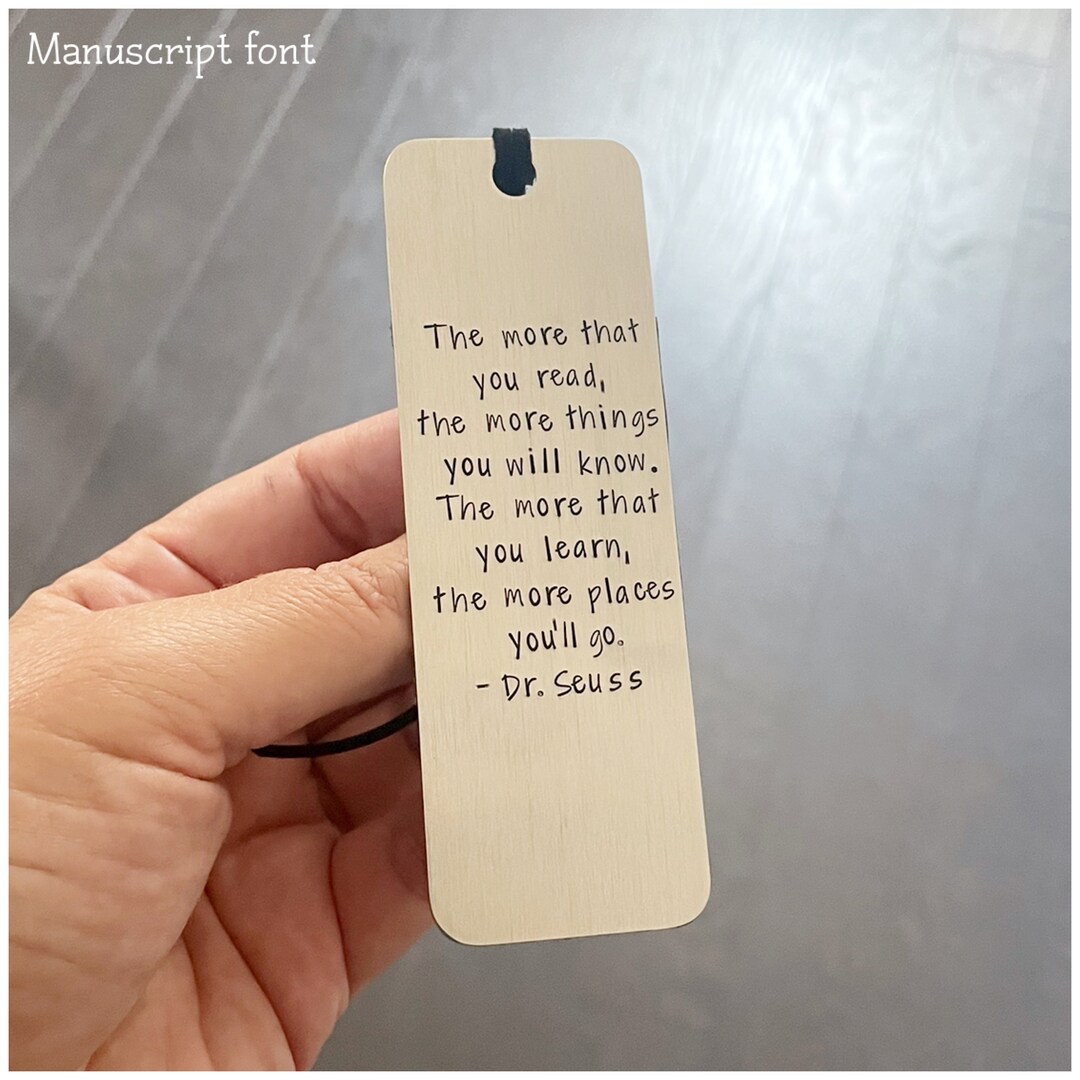 Manuscript font
The more that
you read,
the more things
you will know.
The more that
you learn,
the more places
you'll go.
- Dr. Seuss